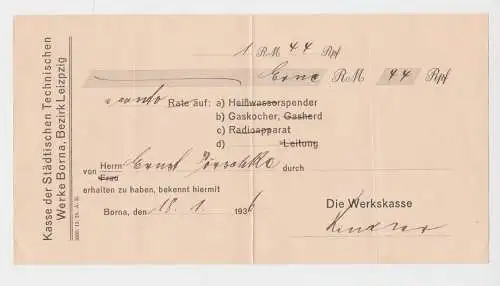 Kasse der Städtischen Technischen
Werke Borna, Bezirk Leizpzig
1 RM 44 Rpf
Eine RM 44 Rpf
Rate auf: a) Heißwasserspender
b) Gaskocher, Gasherd
c) Radioapparat
d) =Leitung
von Herrn Ernst durch
Frau
erhalten zu haben, bekennt hiermit
Borna, den 18. 1. 1936
Die Werkskasse